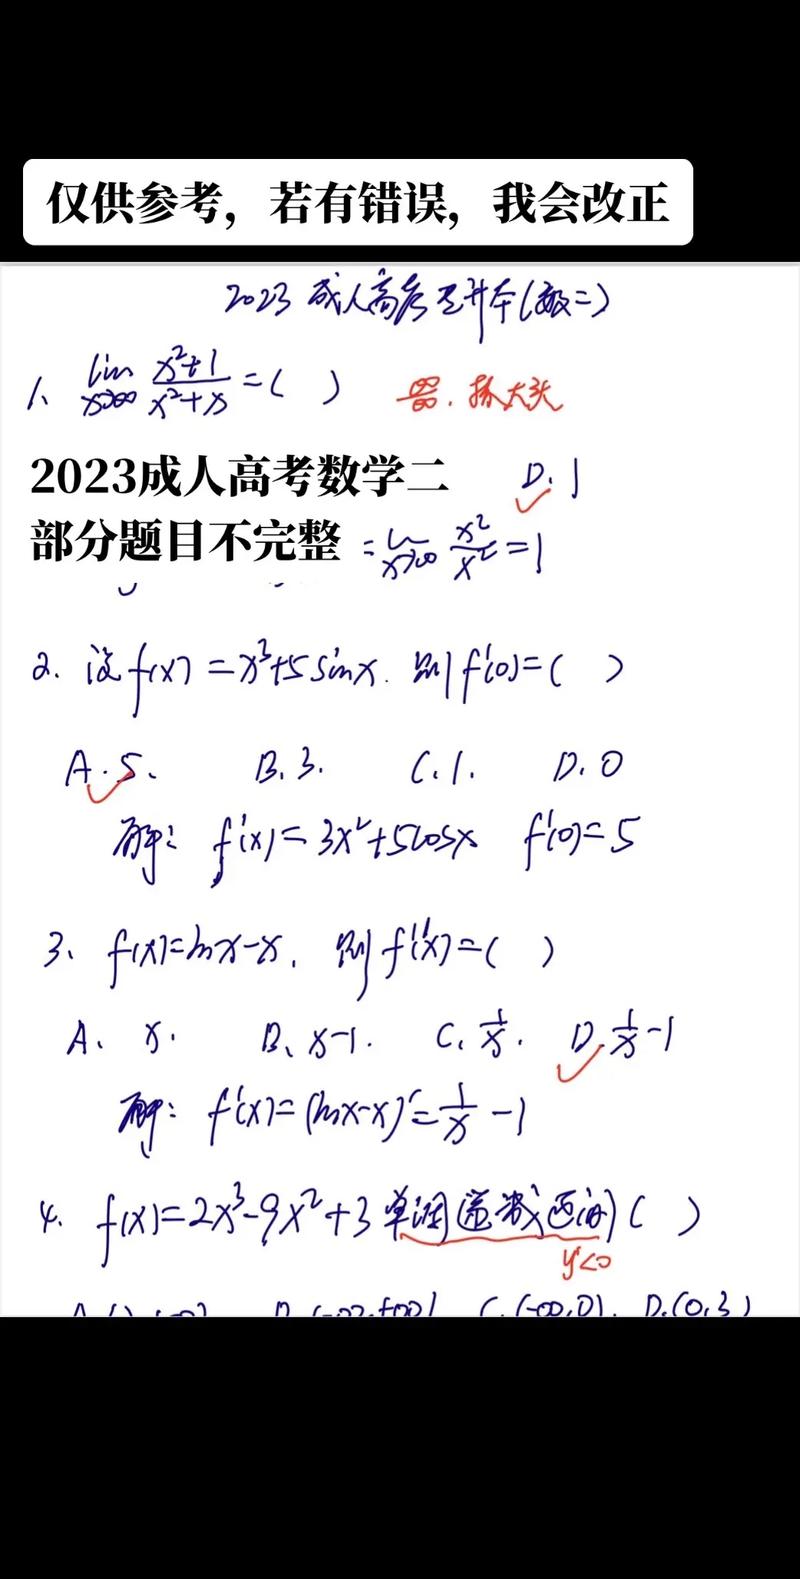 仅供参考，若有错误，我会改正
2023 成人高考专升本(数二)
1、 lim x→∞ (x²+1)/(x²+x) =( ) ∞/∞. 抓大头
2023成人高考数学二 D. 1
部分题目不完整 = lim x→∞ x²/x² = 1
2. 设 f(x) = x³+5sinx. 则 f'(0)=( )
A. 5. B. 3. C. 1. D. 0
解: f'(x)= 3x²+5cosx f'(0)= 5
3、 f(x)=lnx-x. 则 f'(x)=( )
A、 x. B、 x-1. C. 1/x. D. 1/x-1
解: f'(x)= (lnx-x)'= 1/x -1
4. f(x)=2x³-9x²+3 单调递减区间( )
y'<0
C. (-∞,0). D. (0,3)